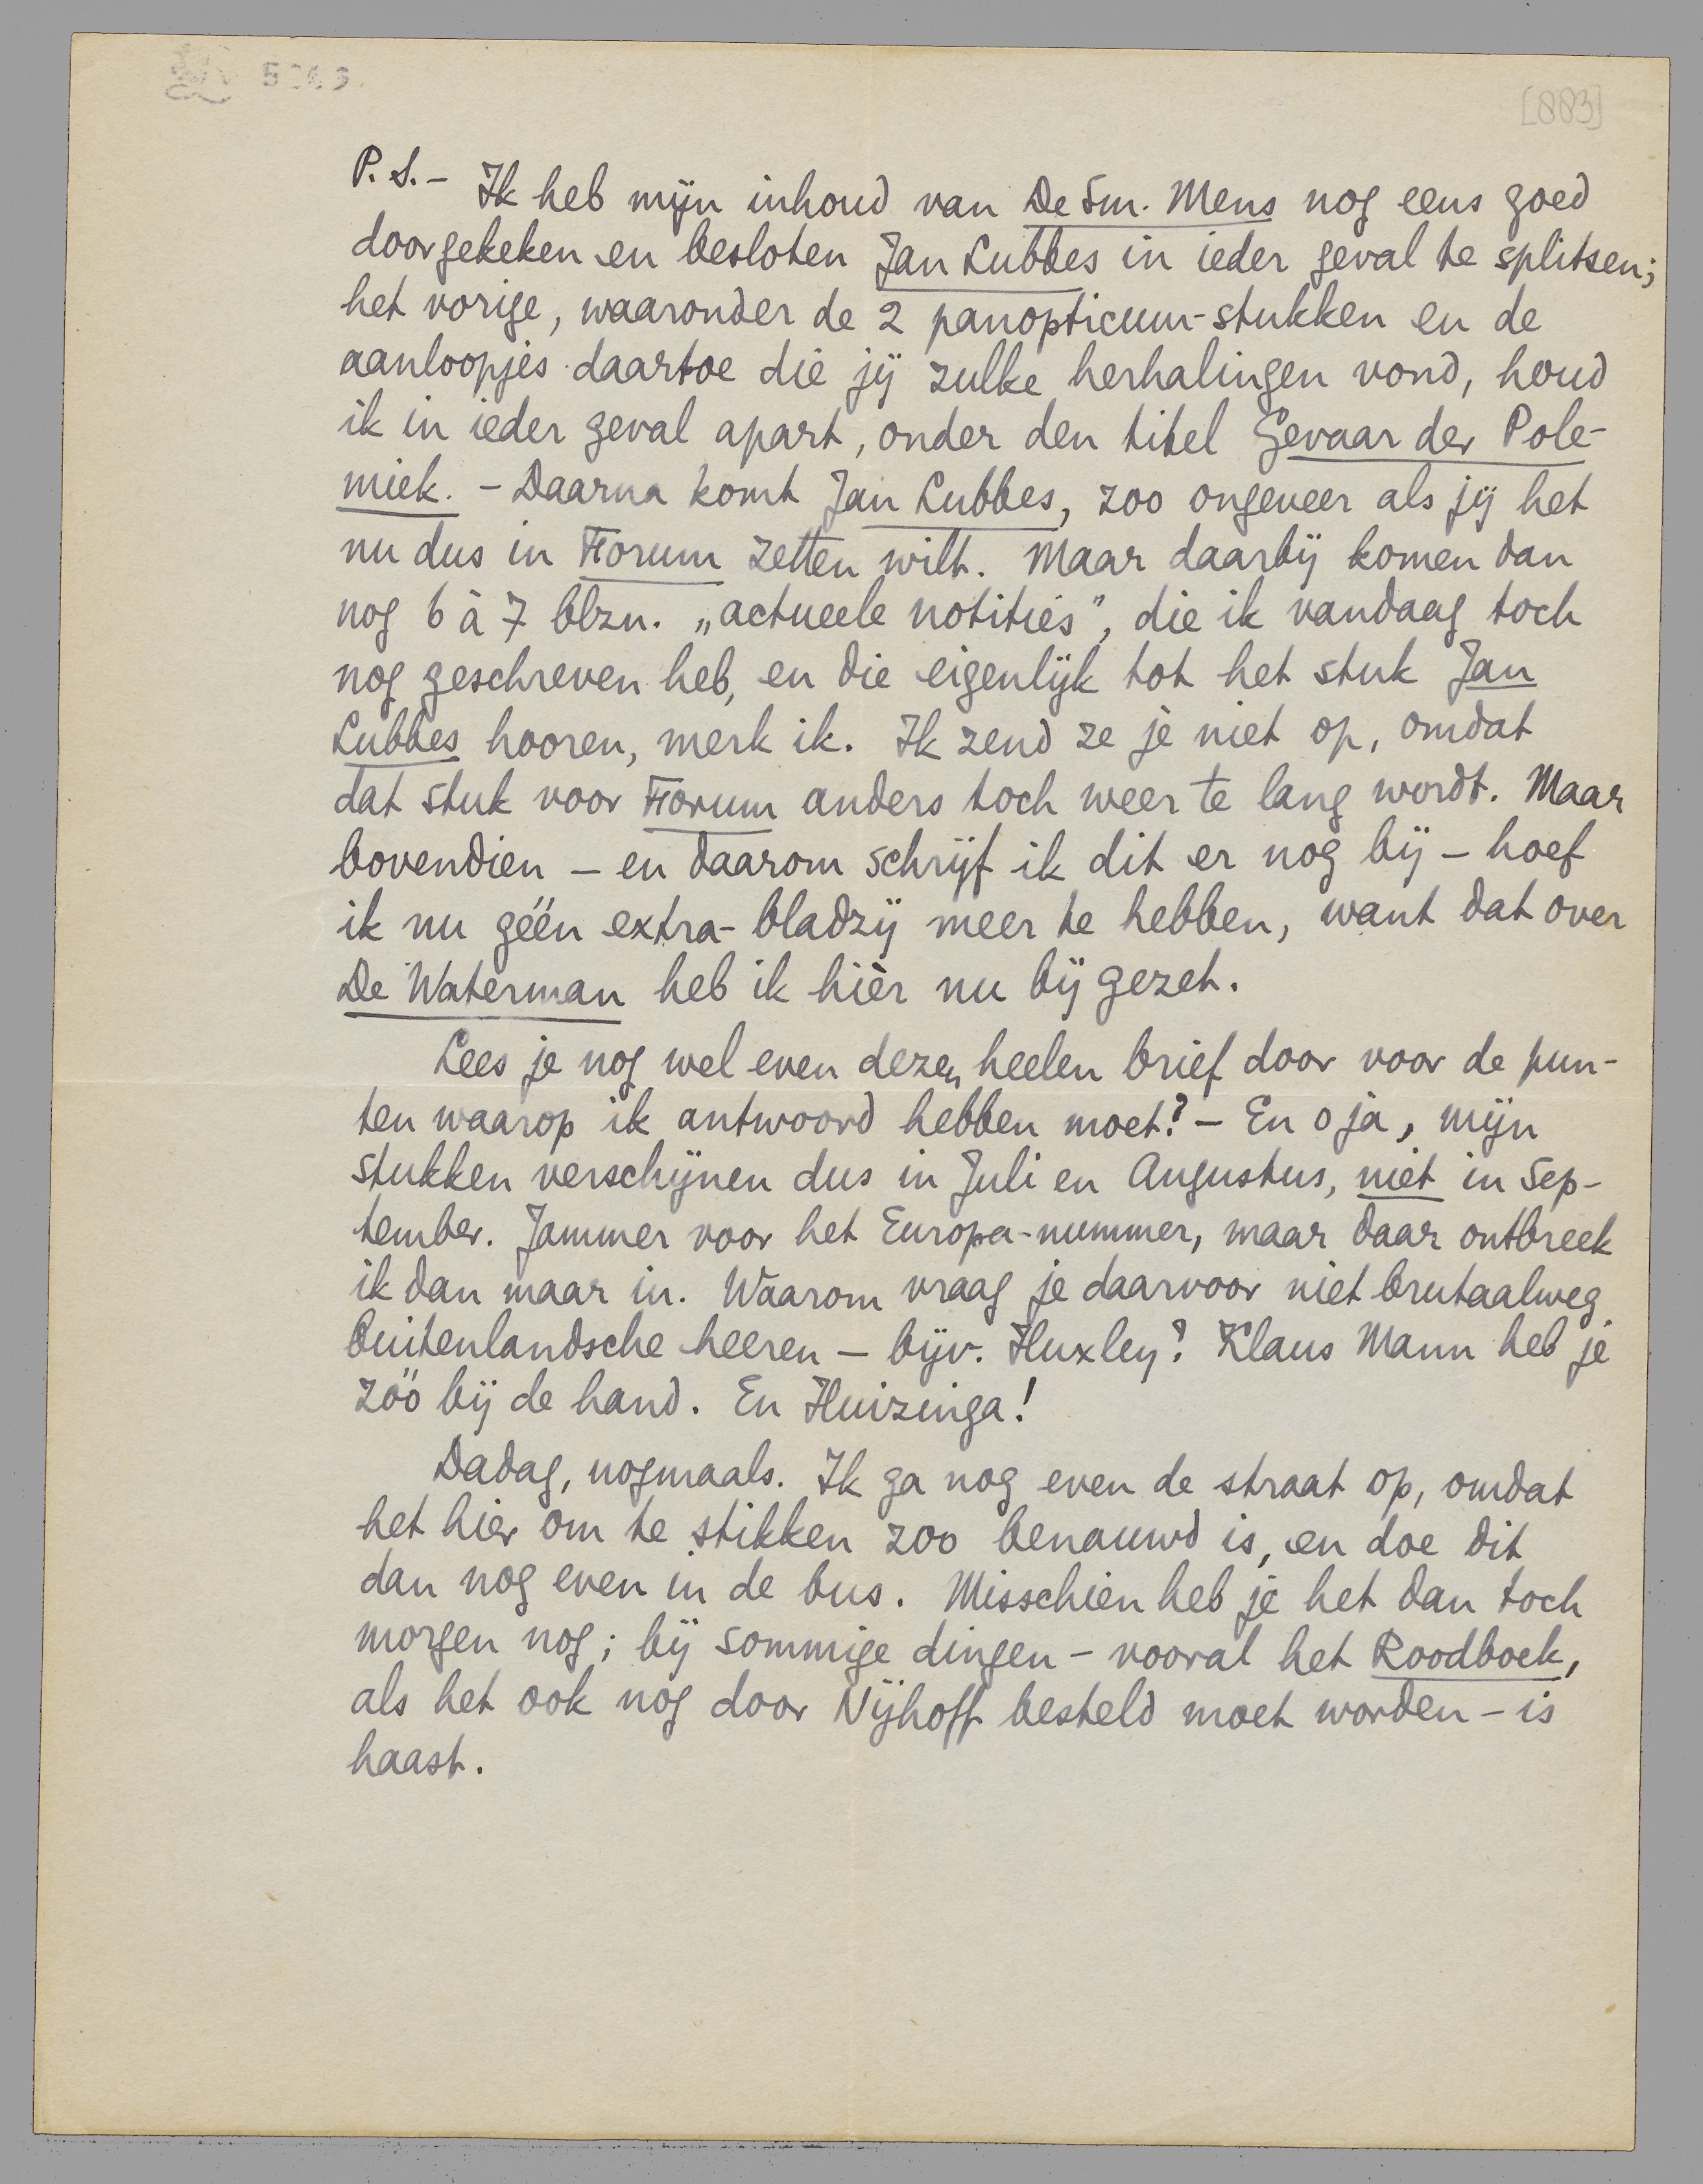 [883]
P.S.– Ik heb mijn inhoud van De Sm. Mens nog eens goed
doorgekeken en besloten Jan Lubbes in ieder geval te splitsen;
het vorige, waaronder de 2 panopticum-stukken en de
aanloopjes daartoe die jij zulke herhalingen vond, houd
ik in ieder geval apart, onder den titel Gevaar der Pole-
miek. – Daarna komt Jan Lubbes, zoo ongeveer als jij het
nu dus in Forum zetten wilt. Maar daarbij komen dan
nog 6 à 7 blzn. „actueele notities”, die ik vandaag toch
nog geschreven heb, en die eigenlijk tot het stuk Jan
Lubbes hooren, merk ik. Ik zend ze je niet op, omdat
dat stuk voor Forum anders toch weer te lang wordt. Maar
bovendien – en daarom schrijf ik dit er nog bij – hoef
ik nu géén extra-bladzij meer te hebben, want dat over
De Waterman heb ik hièr nu bij gezet.
Lees je nog wel even dezen heelen brief door voor de pun-
ten waarop ik antwoord hebben moet? – En o ja, mijn
stukken verschijnen dus in Juli en Augustus, niet in Sep-
tember. Jammer voor het Europa-nummer, maar daar ontbreek
ik dan maar in. Waarom vraag je daarvoor niet brutaalweg
buitenlandsche heeren – bijv. Huxley? Klaus Mann heb je
zóó bij de hand. En Huizinga!
Dadag, nogmaals. Ik ga nog even de straat op, omdat
het hier om te stikken zoo benauwd is, en doe dit
dan nog even in de bus. Misschien heb je het dan toch
morgen nog; bij sommige dingen – vooral het Roodboek,
als het ook nog door Nijhoff besteld moet worden – is
haast.